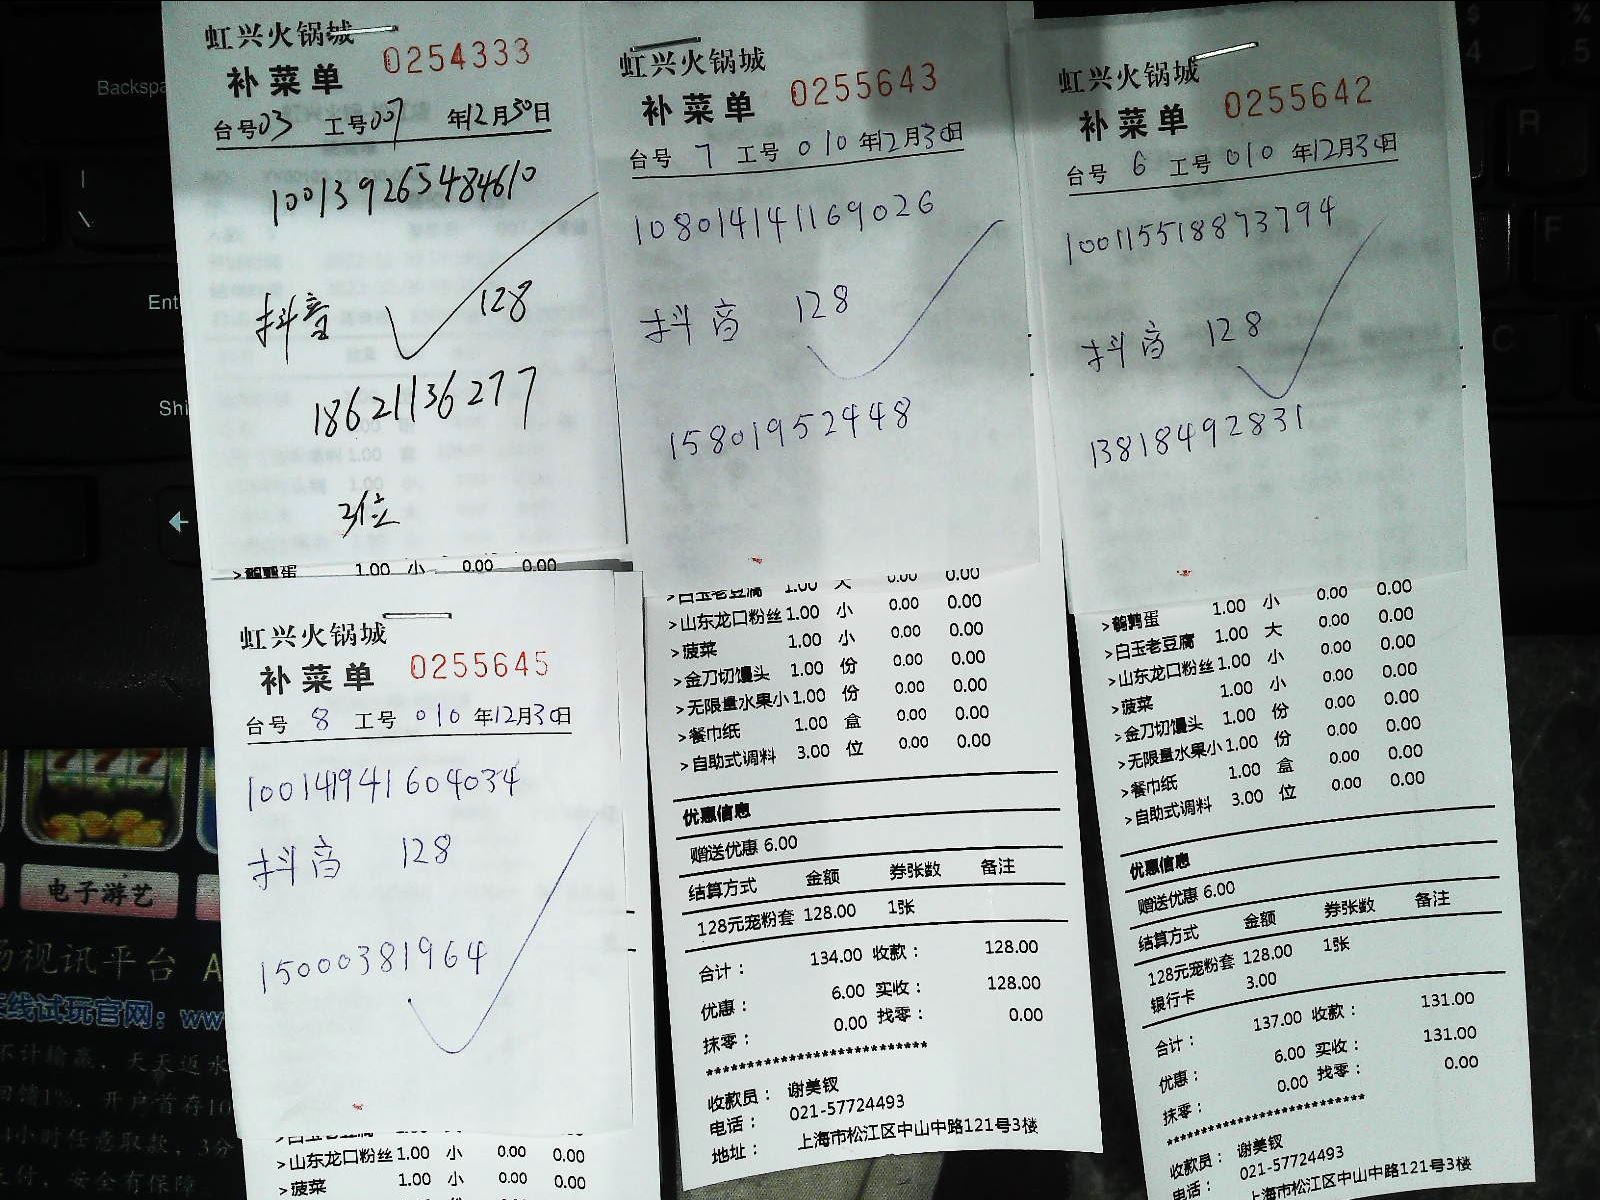 虹兴火锅城
补菜单 0254333
台号03 工号007 年12月30日
1001392654846 10
抖音 128
18621136277
3位
>鹌鹑蛋 1.00 小 0.00 0.00
虹兴火锅城
补菜单 0255643
台号 7 工号 010 年12月30日
108014141169026
抖音 128
15801952448
>白玉老豆腐 1.00 大 0.00 0.00
>山东龙口粉丝 1.00 小 0.00 0.00
>菠菜 1.00 小 0.00 0.00
>金刀切馒头 1.00 份 0.00 0.00
>无限量水果小 1.00 份 0.00 0.00
>餐巾纸 1.00 盒 0.00 0.00
>自助式调料 3.00 位 0.00 0.00
优惠信息
赠送优惠 6.00
结算方式 金额 券张数 备注
128元宠粉套 128.00 1张
合计： 134.00 收款： 128.00
优惠： 6.00 实收： 128.00
抹零： 0.00 找零： 0.00
****************************
收款员： 谢美钗
电话： 021-57724493
地址： 上海市松江区中山中路121号3楼
虹兴火锅城
补菜单 0255642
台号 6 工号 010 年12月30日
100115518873794
抖音 128
13818492831
>鹌鹑蛋 1.00 小 0.00 0.00
>白玉老豆腐 1.00 大 0.00 0.00
>山东龙口粉丝 1.00 小 0.00 0.00
>菠菜 1.00 小 0.00 0.00
>金刀切馒头 1.00 份 0.00 0.00
>无限量水果小 1.00 份 0.00 0.00
>餐巾纸 1.00 盒 0.00 0.00
>自助式调料 3.00 位 0.00 0.00
优惠信息
赠送优惠 6.00
结算方式 金额 券张数 备注
128元宠粉套 128.00 1张
银行卡 3.00
合计： 137.00 收款： 131.00
优惠： 6.00 实收： 131.00
抹零： 0.00 找零： 0.00
****************************
收款员： 谢美钗
电话： 021-57724493
上海市松江区中山中路121号3楼
虹兴火锅城
补菜单 0255645
台号 8 工号 010 年12月30日
100141941604034
抖音 128
15000381964
>山东龙口粉丝 1.00 小 0.00 0.00
>菠菜 1.00 小 0.00 0.00
Backspa
Ent
Shi
777
电子游艺
视讯平台 A
线试玩官网：ww
不计输赢，天天返水
回馈1%，开户首存10
小时任意取款，3分
支付，安全有保障
$
4
%
5
R
F
C